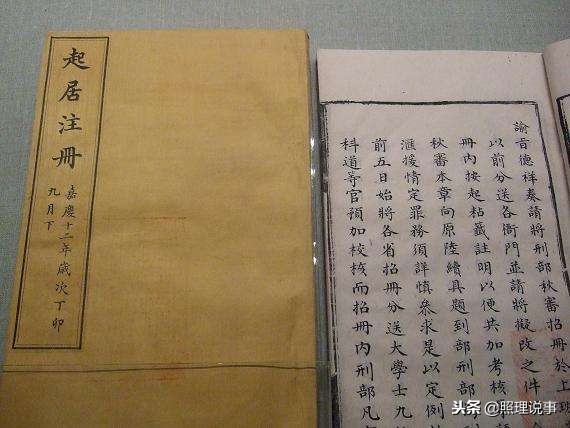 起居注冊
嘉慶十二年歲次丁卯
九月下
諭旨德祥奏請將刑部秋審招冊於上班
以前分送各衙門並請將擬改之件
冊內按起粘籤註明以便共加考核
秋審本章向原陸續具題到部刑部
滙援情定罪務須詳慎叅求是以定例
前五日始將各省招冊分送大學士九
科道等官預加校核而招冊內刑部凡
头条@照理说事